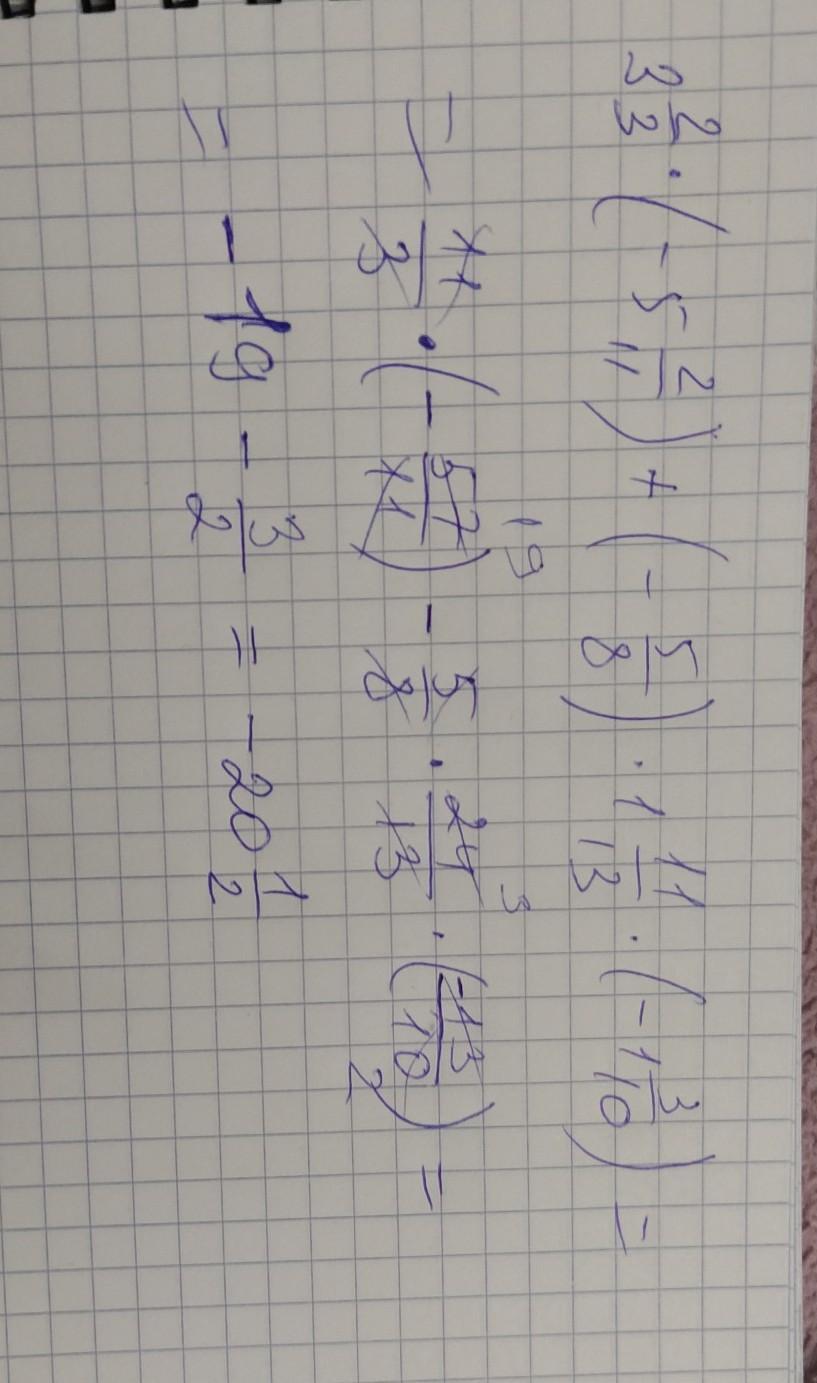 3 2/3 · (-5 2/11) + (-5/8) · 1 11/13 · (-1 3/10) =
= 11/3 · (-57/11) 19 - 5/8 · 24/13 3 · (-13/10) 2 =
= -19 - 3/2 = -20 1/2